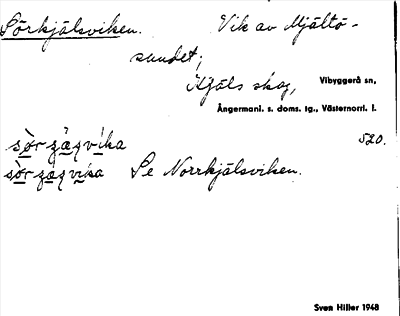 Sörkjälsviken. Vik av Mjältö-
sundet;
Kjäls skog, Vibyggerå sn,
Ångermanl. s. doms. tg., Västernorrl. l.
520.
Se Norrkjälsviken.
Sven Hiller 1948